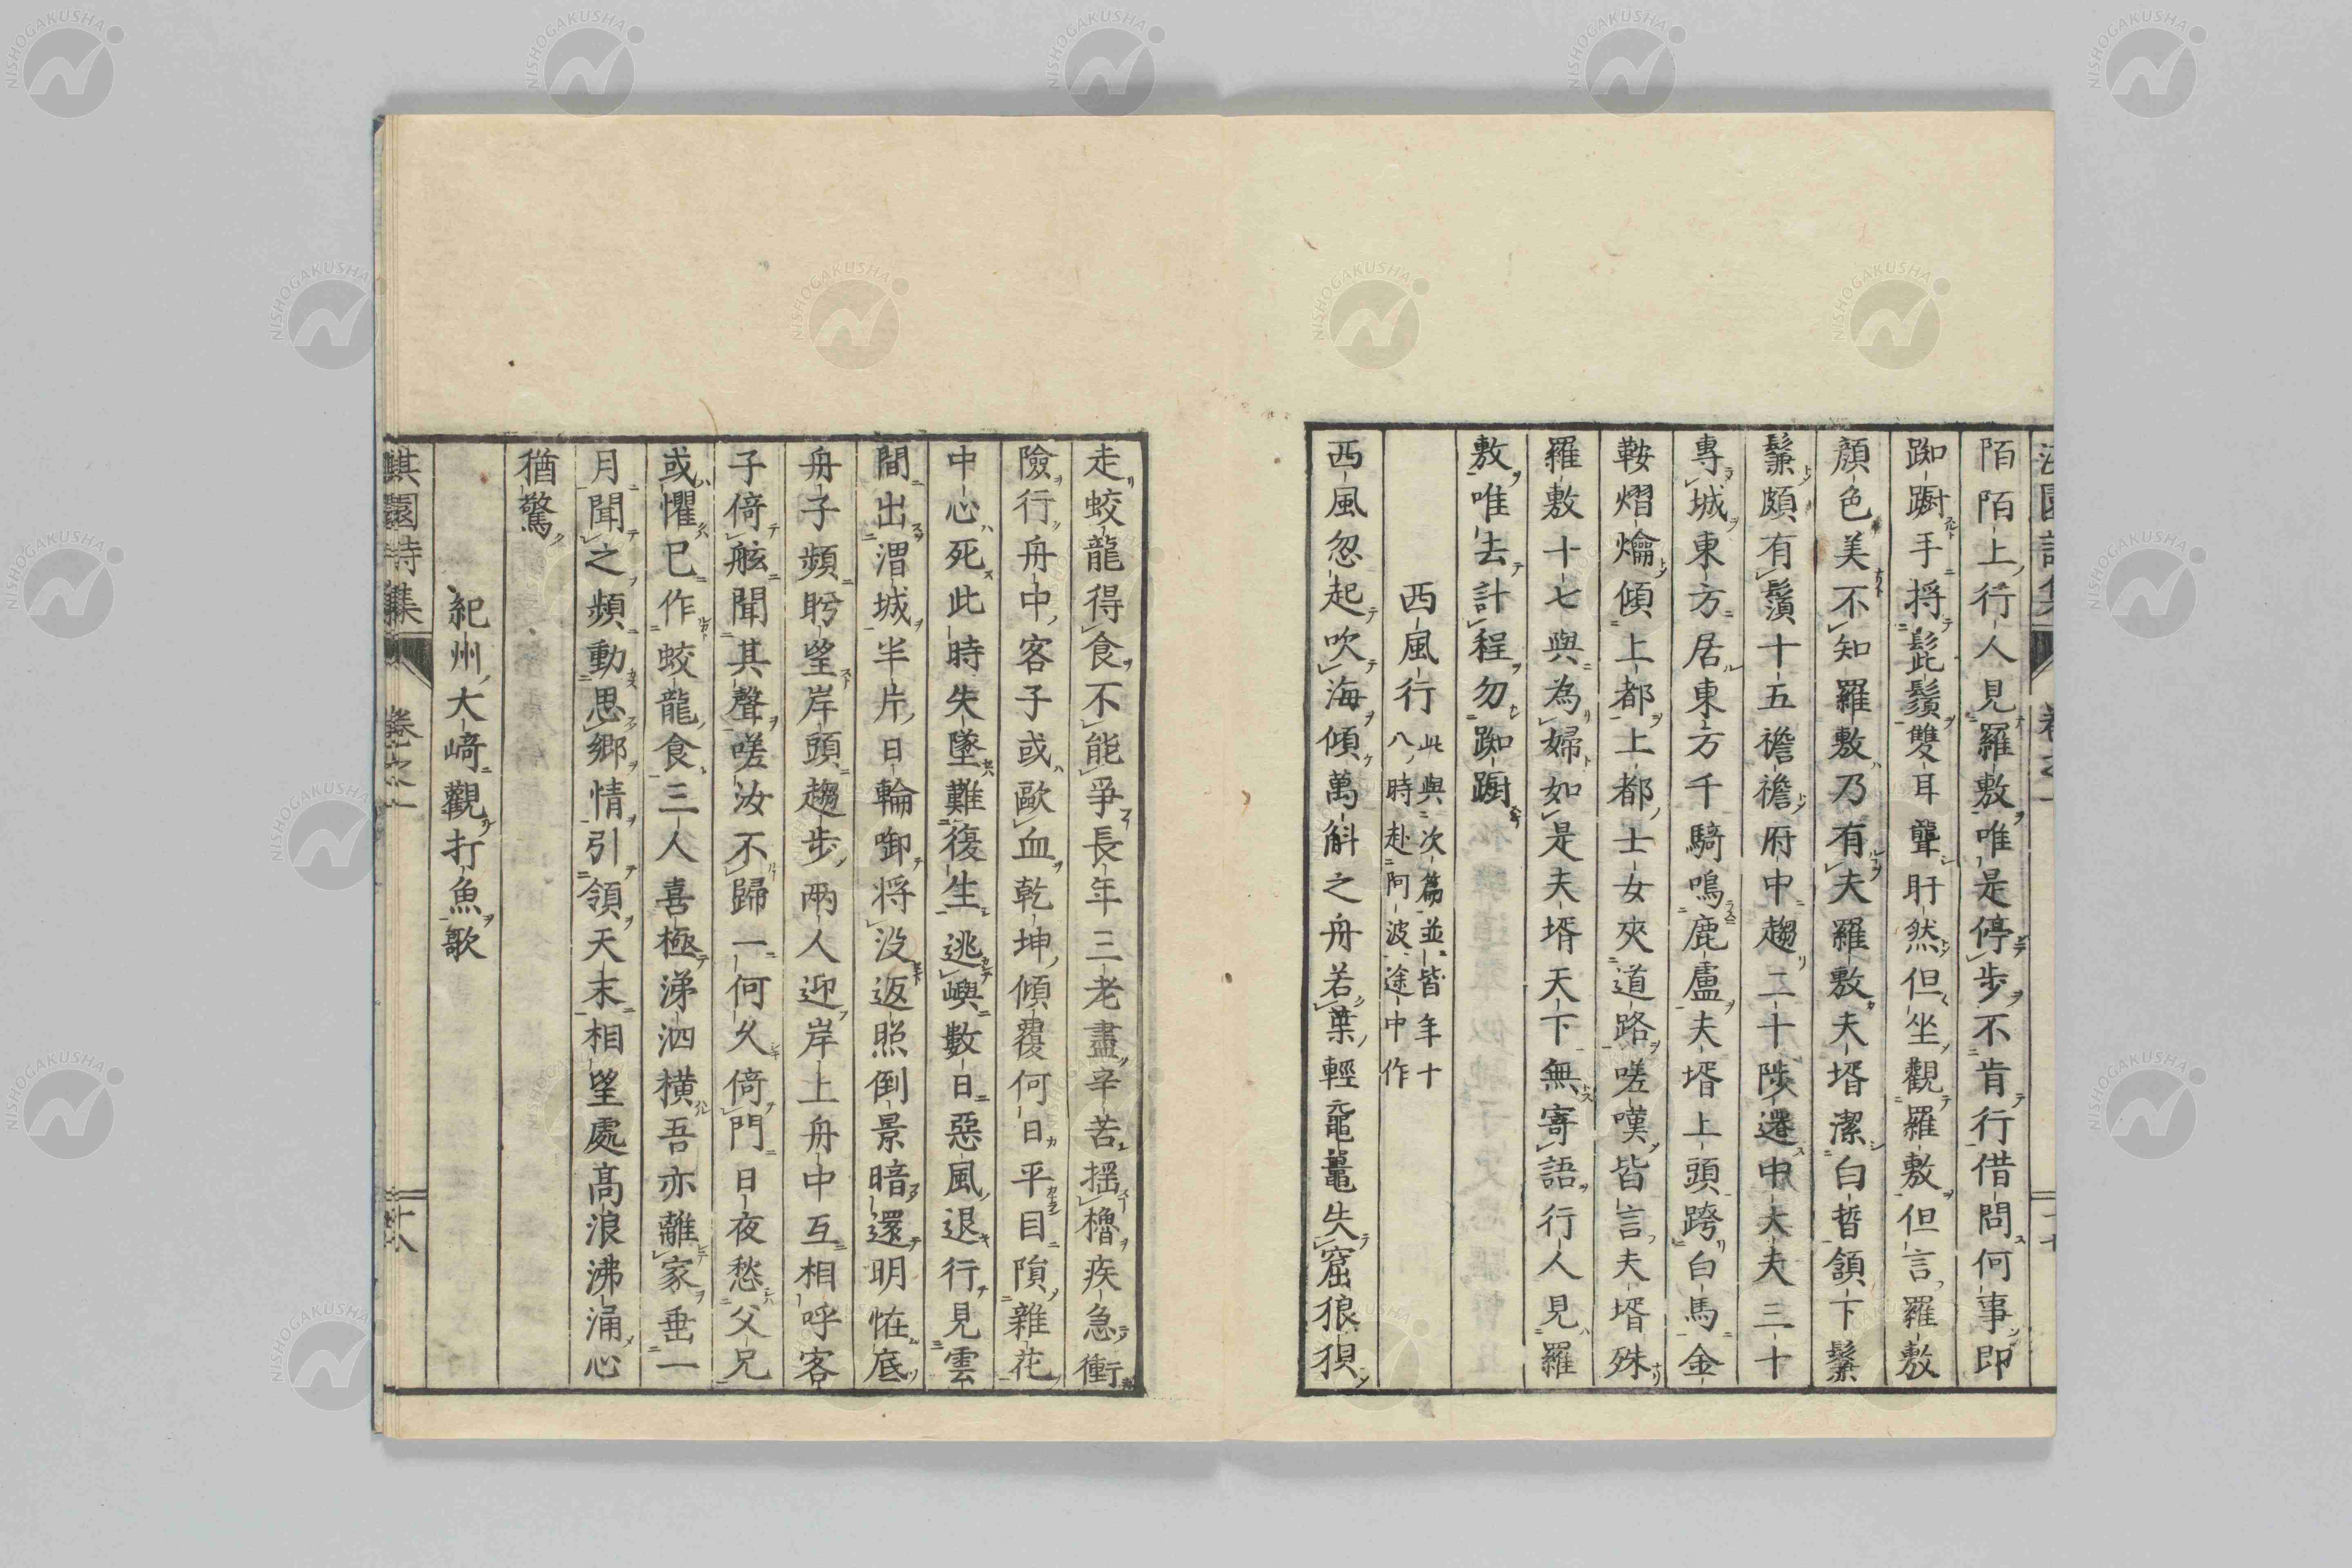 陌陌上行人見羅敷唯是停步不肯行借問何事即
踟躕手將髭鬚雙耳聾盱然但坐觀羅敷但言羅敷
顏色美不知羅敷乃有夫羅敷夫壻潔白晳頷下鬑
鬑頗有鬚十五襜襜府中趨二十陟遷中大夫三十
專城東方居東方千騎鳴鹿盧夫壻上頭跨白馬金
鞍熠爚傾上都上都士女夾道路嗟嘆皆言夫壻殊
羅敷十七與為婦如是夫壻天下無寄語行人見羅
敷唯去計程勿踟躕
西風行 此與次篇並皆年十
八時赴阿波途中作
西風忽起吹海傾萬斛之舟若葉輕黿鼉失窟狼狽
走蛟龍得食不能爭長年三老盡辛苦搖櫓疾急衝
險行舟中客子或歐血乾坤傾覆何日平目隕雜花
中心死此時失墜難復生逃嶼數日惡風退行見雲
間出渭城半片日輪啣將沒返照倒景暗還明恠底
舟子頻盻望岸頭趨步兩人迎岸上舟中互相呼客
子倚舷聞其聲嗟汝不歸一何久倚門日夜愁父兄
或懼已作蛟龍食三人喜極涕泗橫吾亦離家垂一
月聞之頻動思鄉情引領天末相望處高浪沸涌心
猶驚
紀州大﨑觀打魚歌
淇園詩集 卷之一 十八
NISHOGAKUSHA